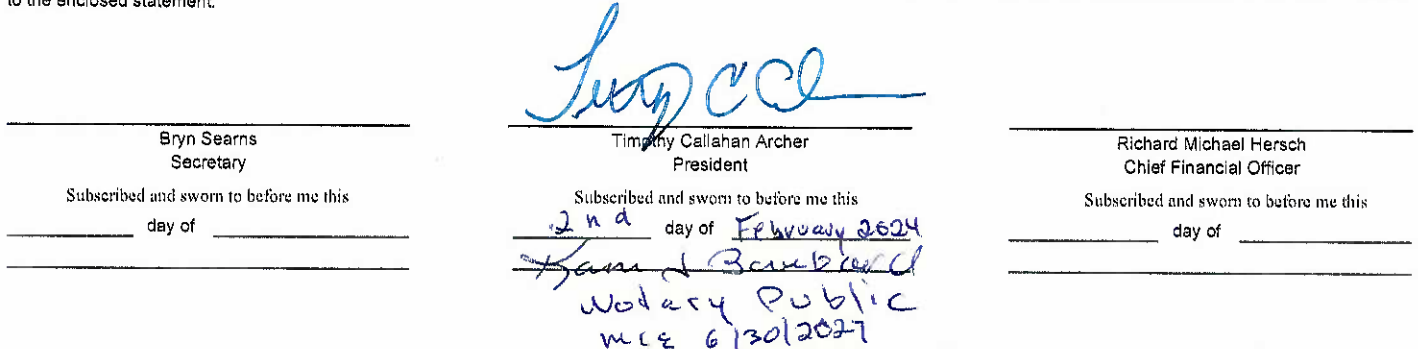 to the enclosed statement.
Bryn Searns
Secretary
Subscribed and sworn to before me this
day of
Timothy Callahan Archer
President
Subscribed and sworn to before me this
2nd day of February 2024
Notary Public
MCE 6/30/2027
Richard Michael Hersch
Chief Financial Officer
Subscribed and sworn to before me this
day of